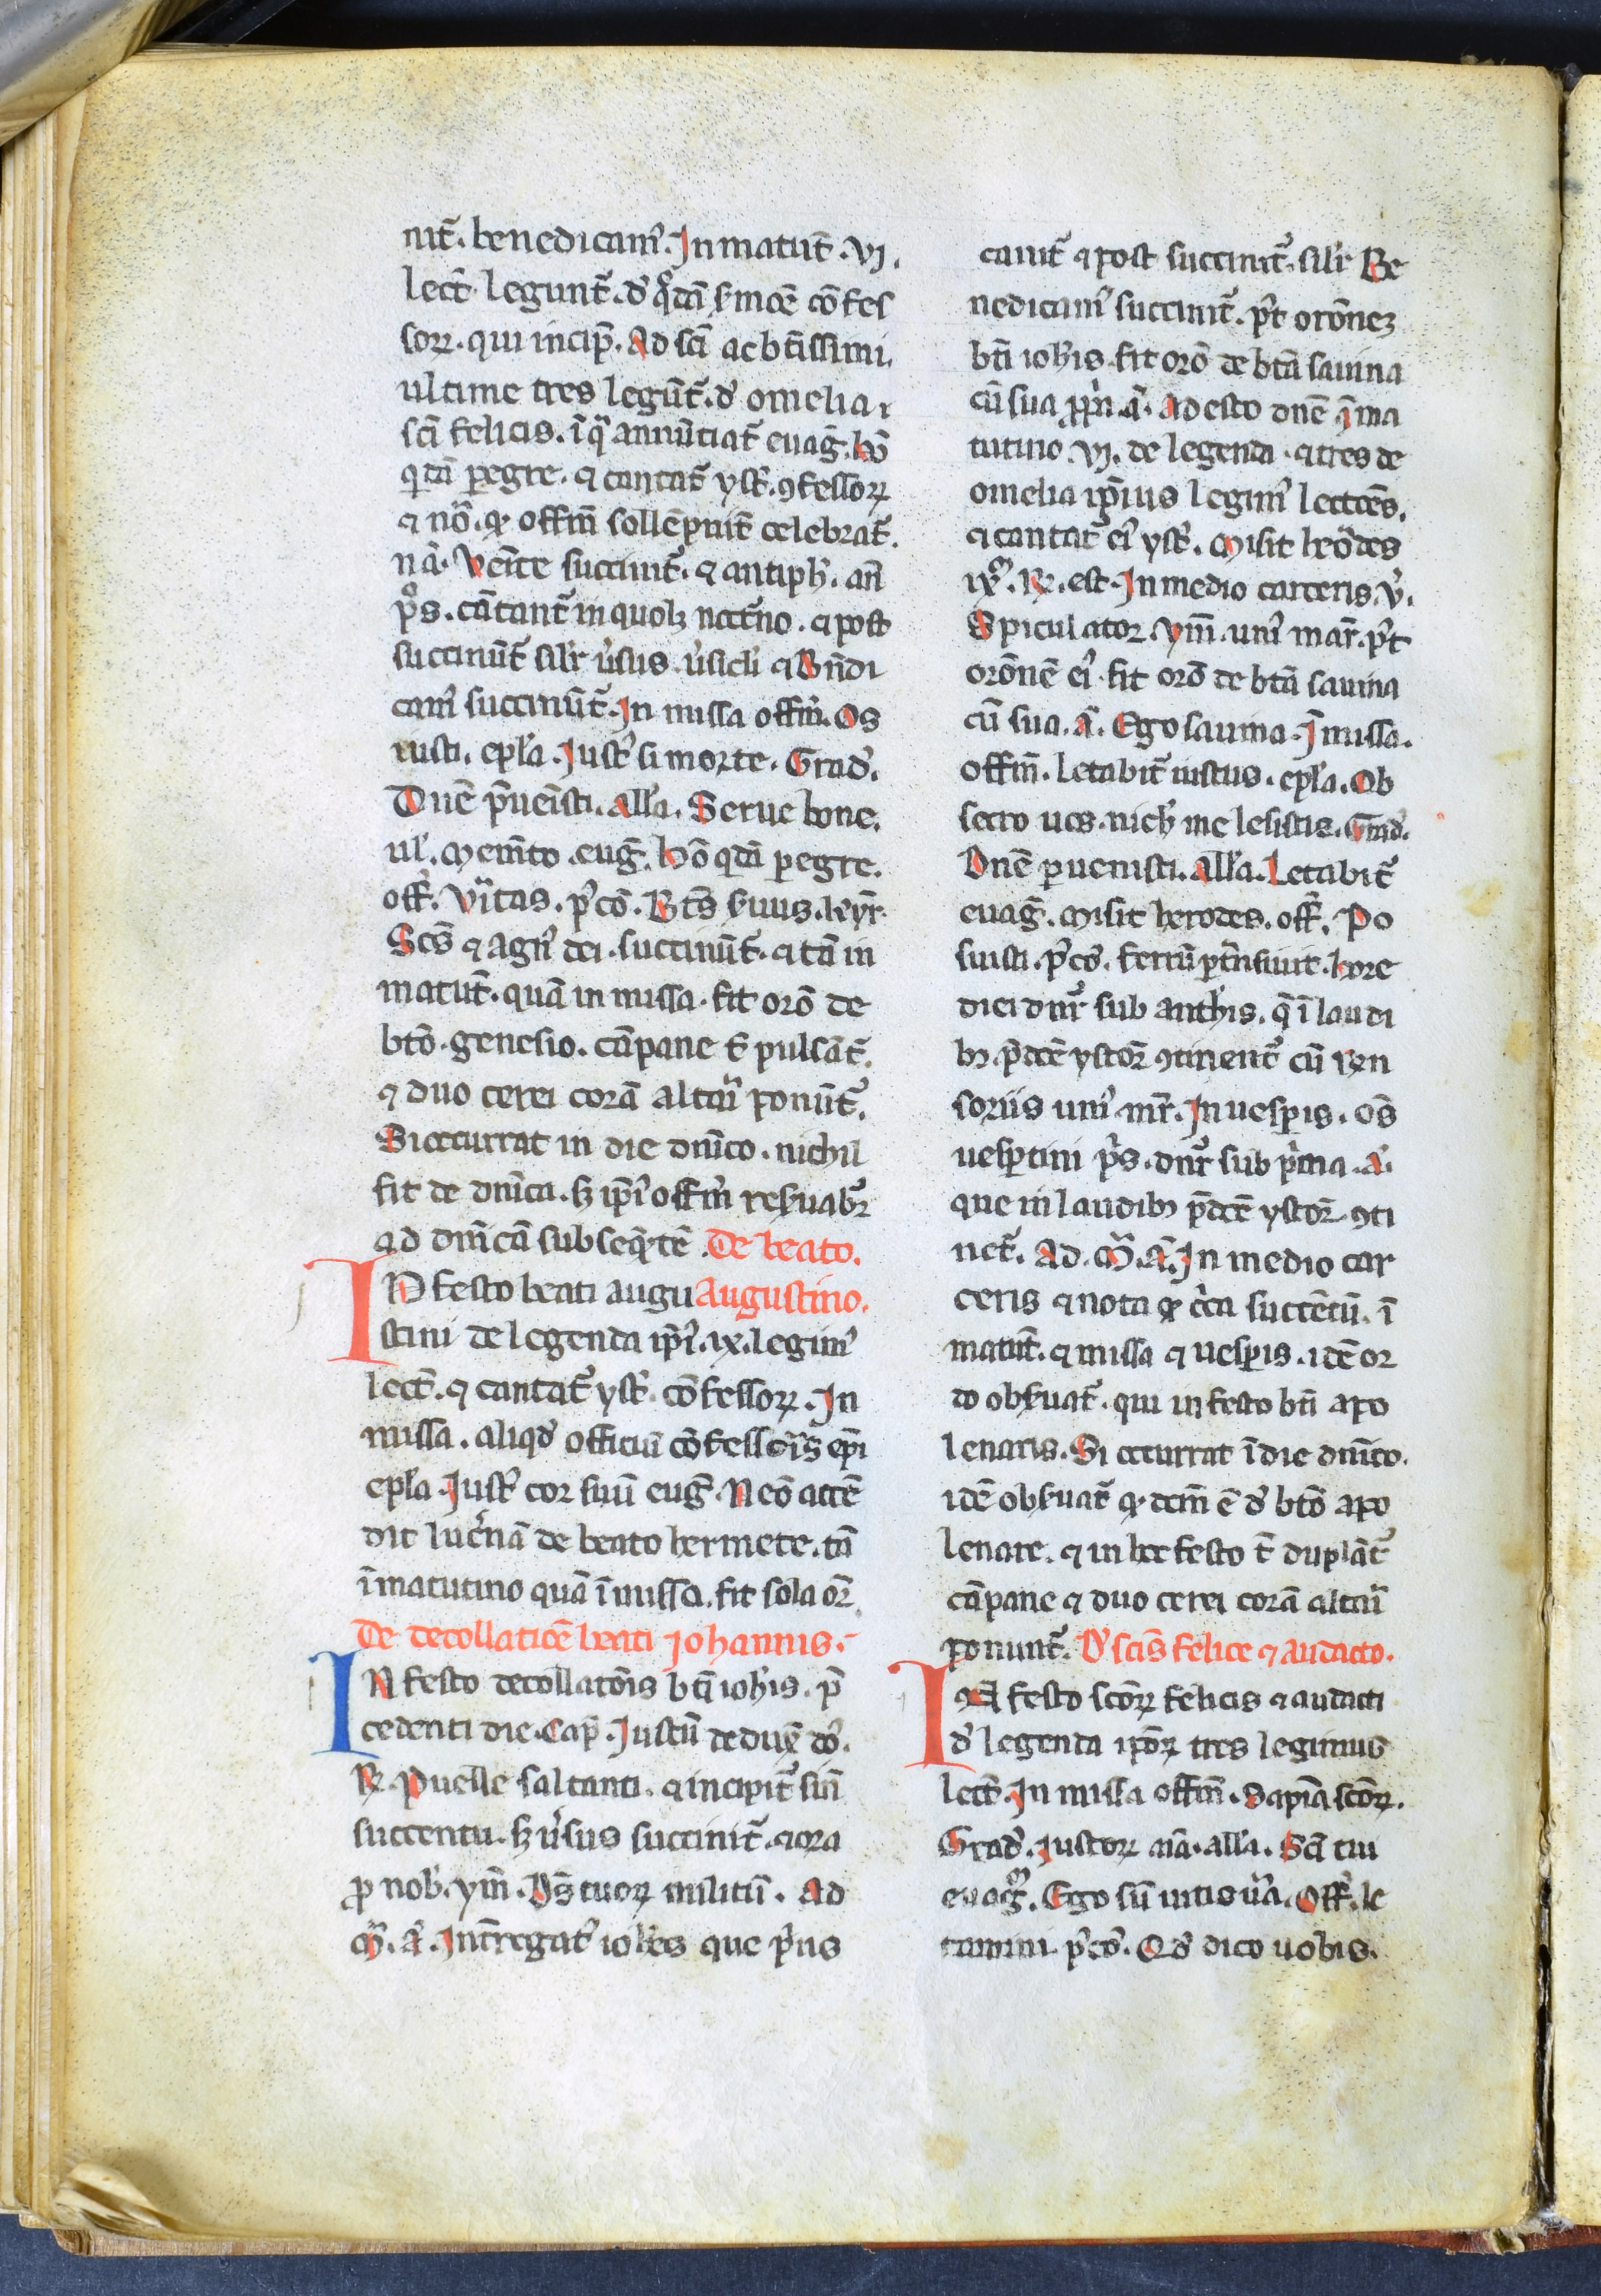 nit᷑. benedicam᷒. In matut᷑. vj.
lect᷑. legunt᷑. d̕ q̊dã ẜmõe cõfes
soꝝ. qui incip̃. Ad sc̃i ac bt̃issimi.
ultime tres legũt᷑. d̕ omelia ⁊
sc̃i felicis. ĩ q̃ annũtiat᷑ euag̃. hõ
q̇dã ꝑegre. ⁊ cantat᷑ yst̕. ꝯfessoꝝ
⁊ nõ. ꝙ offm̃ sollẽpnit᷑ celebrat᷑.
nã. Venite succinit᷑. ⁊ antiph̕. añ
p̊s. cãtant᷑ in quolꝫ noct̃no. ⁊ post
succinũt᷑ silr̕ ũsus. ũsicl̕i ⁊ Bñdi
cam᷒ succinũt᷑. In missa offm̃. Os
iusti. epl̕a. Iust᷒ si morte. Grad̕.
Dñe p̃uẽisti. all̕a. Serue bone.
ul̕. Memẽto. eug̃. hõ q̇dã ꝑegre.
off̕. Ũitas. p᷒cõ. Bt̃s ẜuus. kyr̃.
Sc̃s ⁊ agn᷒ dei. succinũt᷑. ⁊ tã in
matut᷑. quã in missa. fit orõ de
bt̃o. genesio. cãpane t̃ pulsãt᷑.
⁊ duo cerei corã altari ponũt᷑.
Si occurrat in die dñico. nichil
fit de dñica. ꜩ ip̃i᷒ offm̃ reẜuabr᷑
ad dñicã subseq̃tẽ. De beato.
IN festo beati augu Augustino.
stini de legenda ip̃i᷒. ix. legim᷒
lect᷑. ⁊ cantat᷑ yst̕. cõfessoꝝ. In
missa. aliqd̕ officiũ cõfessõris ep̃i
epl̕a. Iust᷒ cor suũ eug̃. Neõ accẽ
dit luc̃nã de beato hermete. tã
ĩ matutino quã ĩ missa. fit sola or̃.
De decollatiõe beati Iohannis.
IN festo decollatõis bt̃i ioh̕is. p̃
cedenti die. Cap̃. Iustũ deduẋ dñ̕s.
℟. Puelle saltanti. ⁊ incipit᷑ sin̄
succentu. ꜩ ũsus succinit᷑. ⁊ ora
ꝓ nob̕. ym̃. Ds̃ tuoꝝ militũ. Ad
M̃. ã. Int̃regat᷒ ioh̕es que p̃us
cauit᷑ ⁊ post succinit᷑. silr̕ Be
nedicam᷒ succinit᷑. p᷒t orõneꝫ
bt̃i ioh̕is. fit orõ de bt̃a sauina
cũ sua ꝓp̃ã. ã. Adesto dñe ĩ ma
tutino. vj. de legenda. ⁊ tres de
omelia ip̃ius legim᷒ lecc̃oes.
⁊ cantat᷑ ei᷒ yst̕. Misit herodes
ixᵐ. ℟. est. In medio carceris. v̕.
Spiculator. ym̃. uni᷒ mar̃. p᷒t
orõnẽ ei᷒. fit orõ de bt̃a sauina
cũ sua. ã. Ego sauina. Ĩ missa.
offm̃. letabit᷑ iustus. epl̕a. Ob
secro uos. nich̕ me lesistis. Grad̕.
Dñe ꝑuenisti. all̕a. Letabit᷑
euag̃. Misit herodes. off̕. Po
suisti. p᷒cõ. ferrũ ꝑt̃nsiuit. hore
diei dnr̃ sub anth̕is. q̃ ĩ laudi
bꝫ. p̃dc̃e ystor̃ ꝯtinent᷑ cũ ren
soriis uni᷒. mr̃. In uesꝑis. os̃
uesꝑtini p̃s. dnr̃ sub p̃ma. ã.
que in laudibꝫ p̃dc̃e ystor̃. ꝯti
net᷑. Ad. M̃. ã. In medio car
ceris ⁊ nota ꝙ c̃ca succẽtũ. ĩ
matut᷑. ⁊ missa ⁊ uesꝑis. idẽ or
do obẜuat᷑. qui in festo bt̃i apo
lenaris. Si occurrat ĩ die dñico.
idẽ obẜuat᷑ ꝙ dcm̃ ẽ d̕ bt̃o apo
lenare. ⁊ in hoc festo t̃ duplãt᷑
cãpane ⁊ duo cerei corã altari
ponunt᷑. D̕ scĩs felice ⁊ Audacto.
IN festo scõꝝ felicis ⁊ audacti
d̕ legenda ip̃oꝝ tres legimus
lect᷑. In missa offm̃. Sapiã scõꝝ.
Grad̕. Iustoꝝ aĩa. all̕a. Sc̃i tui
euagᵐ. Ego sũ uitis ũa. Off̕. le
tamini p᷒cõ. Qd̕ dico uobis.